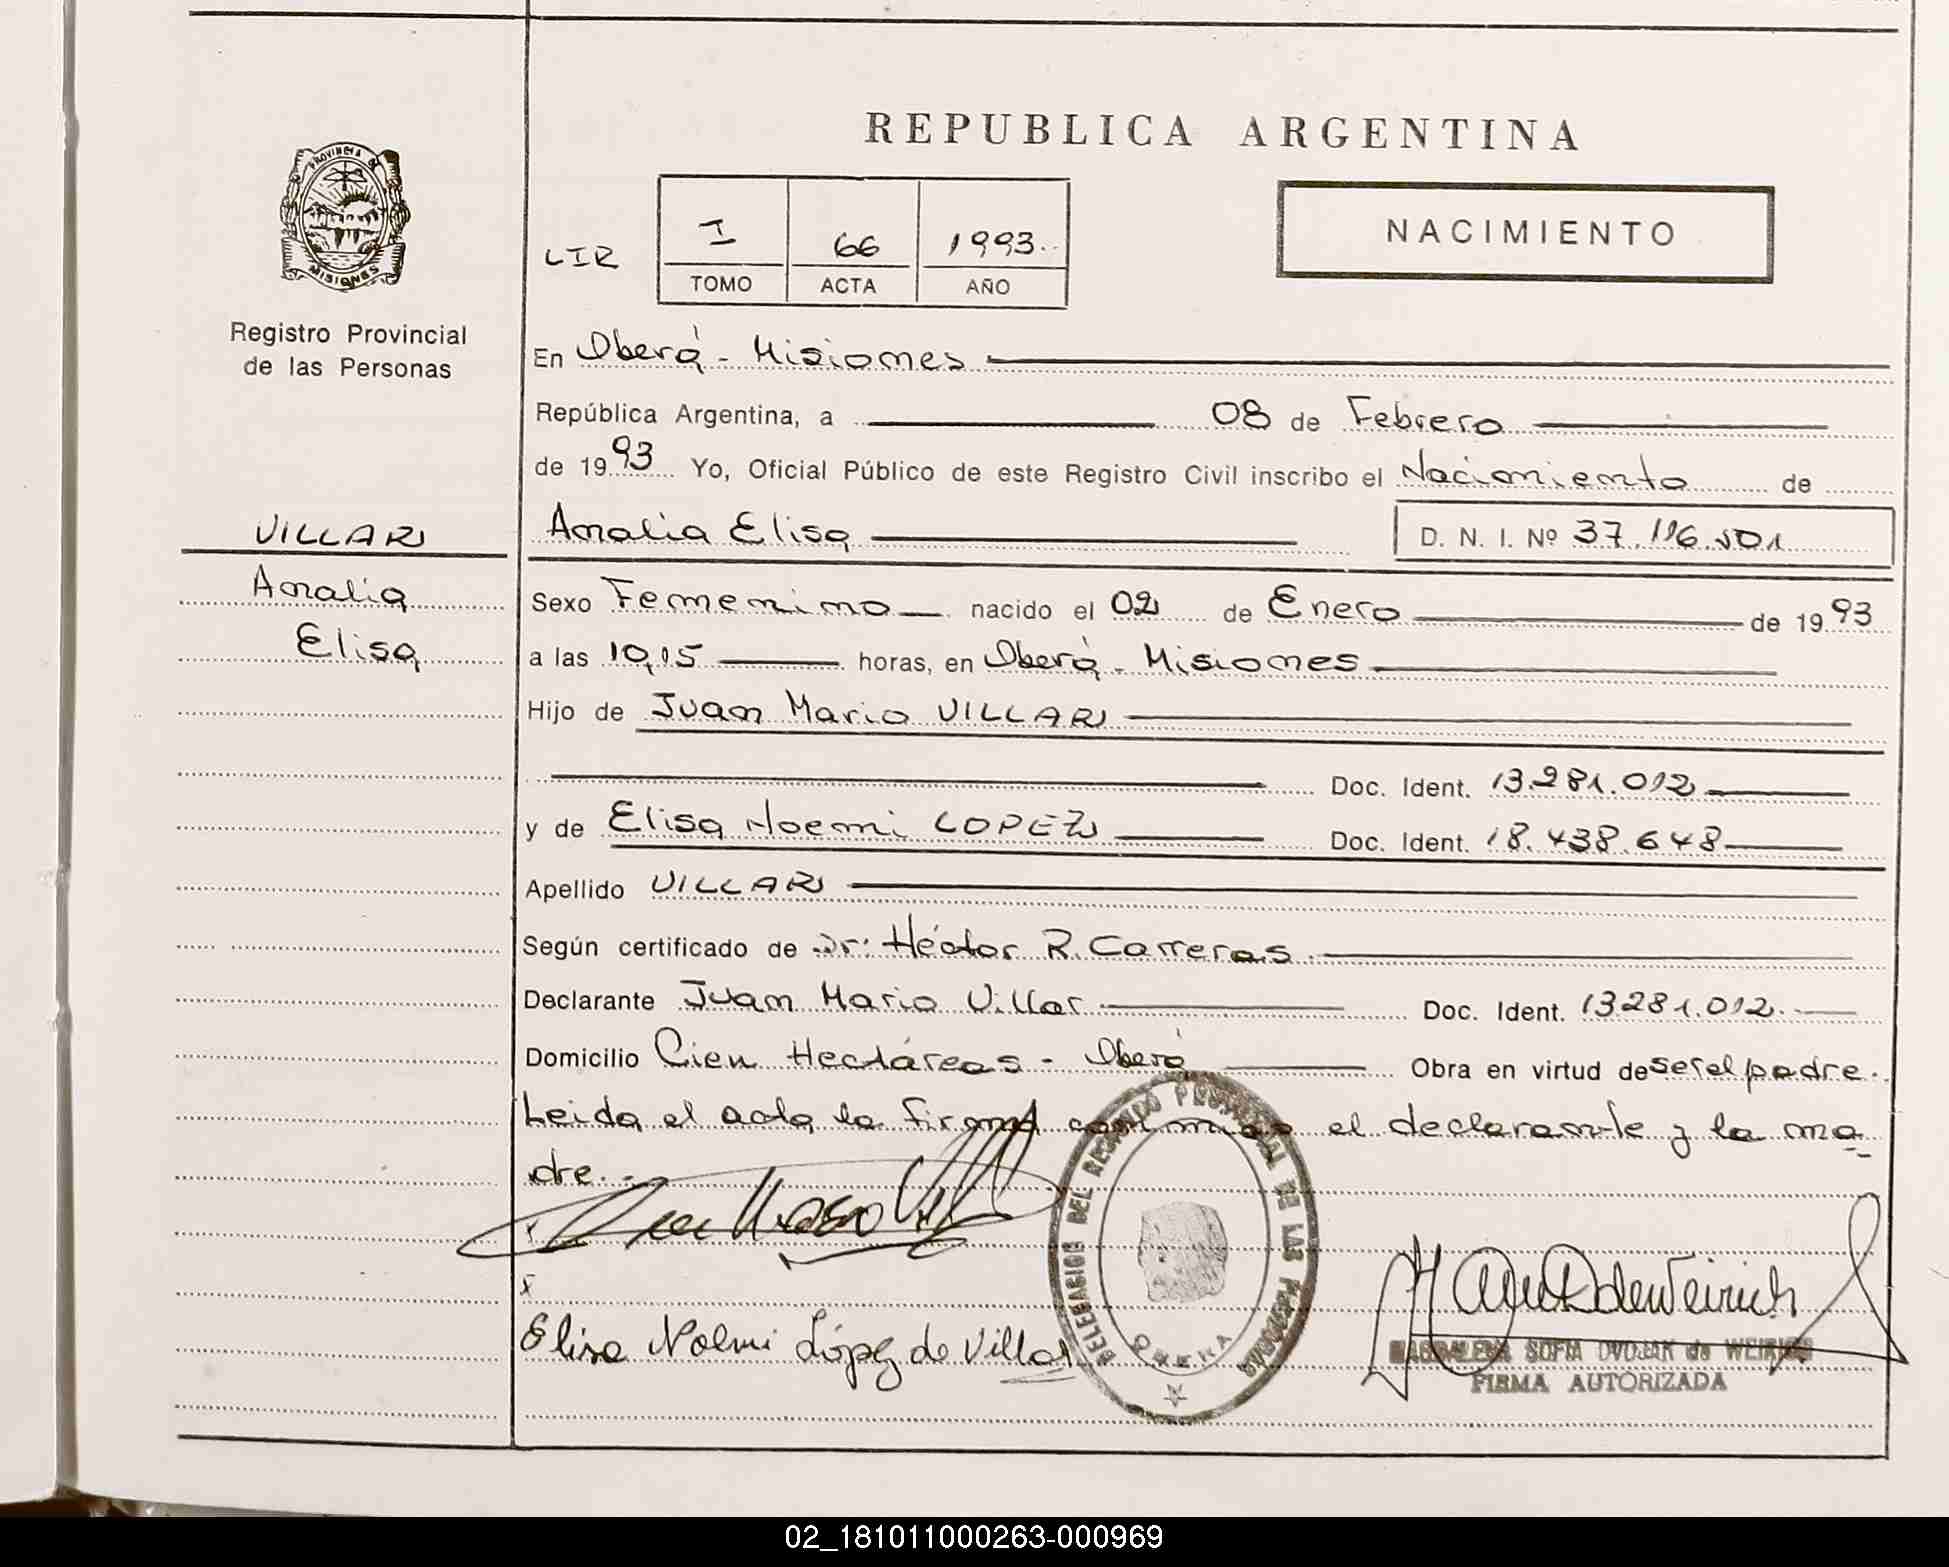 REPUBLICA ARGENTINA
PROVINCIA DE
MISIONES
Registro Provincial
de las Personas
LIR
I 66 1993
TOMO ACTA AÑO
NACIMIENTO
En Oberá - Misiones
República Argentina, a 08 de Febrero
de 1993 Yo, Oficial Público de este Registro Civil inscribo el Nacimiento de
VILLAR
Amalia Elisa D. N. I. Nº 37.116.501
Amalia
Elisa
Sexo Femenino nacido el 02 de Enero de 1993
a las 10,15 horas, en Oberá - Misiones
Hijo de Juan Mario VILLAR
Doc. Ident. 13.281.012
y de Elisa Noemi LOPEZ Doc. Ident. 18.438.648
Apellido VILLAR
Según certificado de Dr: Héctor R. Carreras
Declarante Juan Mario Villar Doc. Ident. 13.281.012.
Domicilio Cien Hectáreas - Oberá Obra en virtud de ser el padre.
Leida el acta la firman conmigo el declarante y la ma
dre.-
x
Elisa Noemi López de Villar
DELEGACION DEL REGISTRO PROVINCIAL DE LAS PERSONAS
OBERA
MAGDALENA SOFIA DVOJAK de WEIRICH
FIRMA AUTORIZADA
02_181011000263-000969